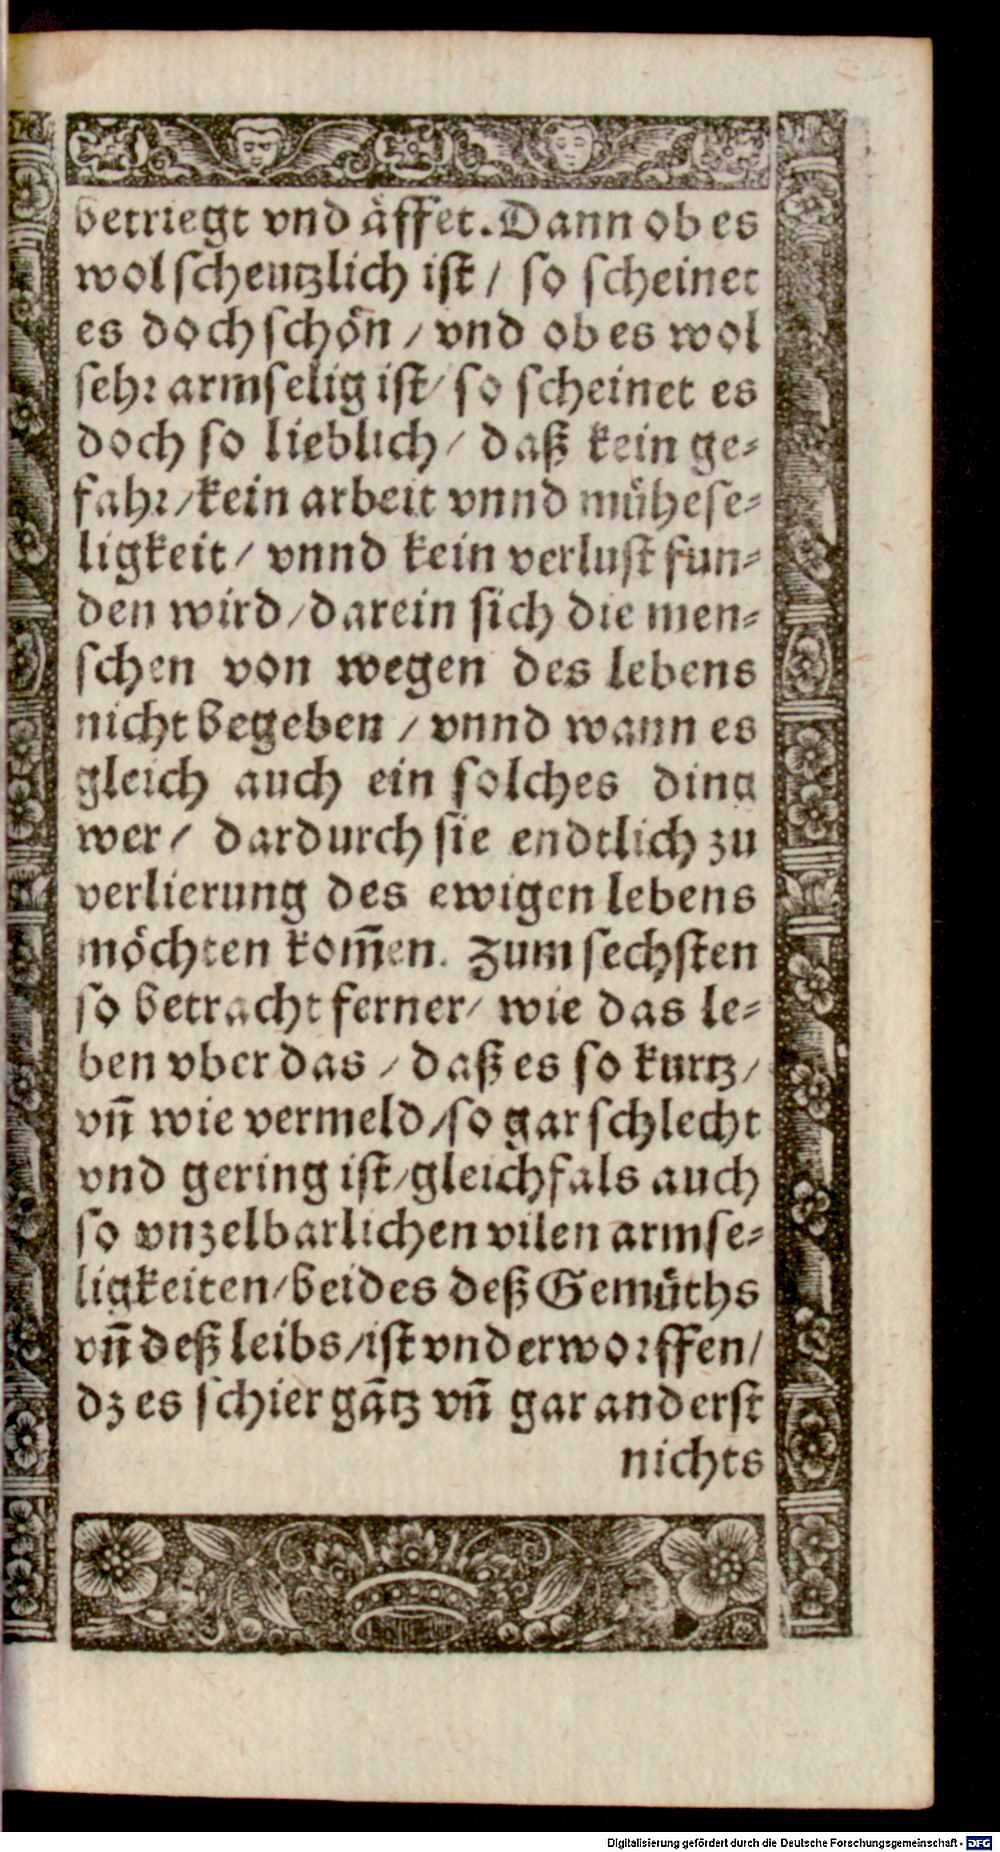 betriegt vnd äffet. Dann ob es
wol scheutzlich ist / so scheinet
es doch schön / vnd ob es wol
sehr armselig ist / so scheinet es
doch so lieblich / daß kein ge-
fahr / kein arbeit vnnd mühese-
ligkeit / vnnd kein verlust fun-
den wird / darein sich die men-
schen von wegen des lebens
nicht begeben / vnnd wann es
gleich auch ein solches ding
wer / dardurch sie endtlich zu
verlierung des ewigen lebens
möchten kom̄en. Zum sechsten
so betracht ferner / wie das le-
ben vber das / daß es so kurtz /
vn̄ wie vermeld / so gar schlecht
vnd gering ist / gleichfals auch
so vnzelbarlichen vilen armse-
ligkeiten / beides deß Gemüths
vn̄ deß leibs / ist vnderworffen /
dz es schier gātz vn̄ gar anderst
nichts
Digitalisierung gefördert durch die Deutsche Forschungsgemeinschaft - DFG